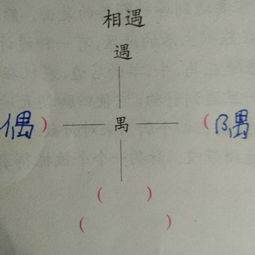 相遇
遇
偶） 禺 （隅
（ ）
（ ）